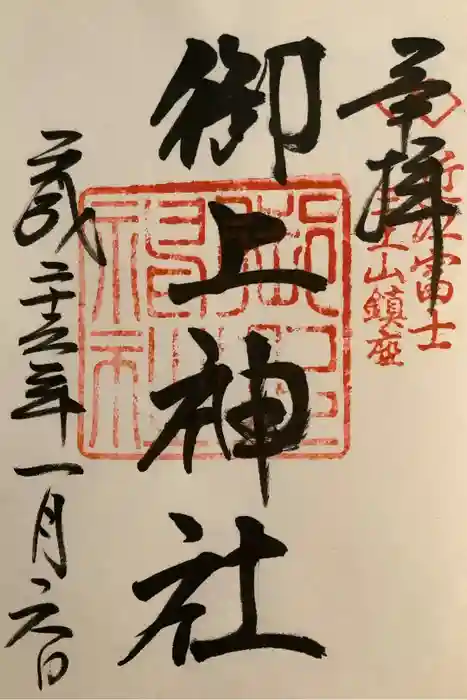 奉拝
近江富士
三上山鎮座
御上神社
平成二十六年一月六日